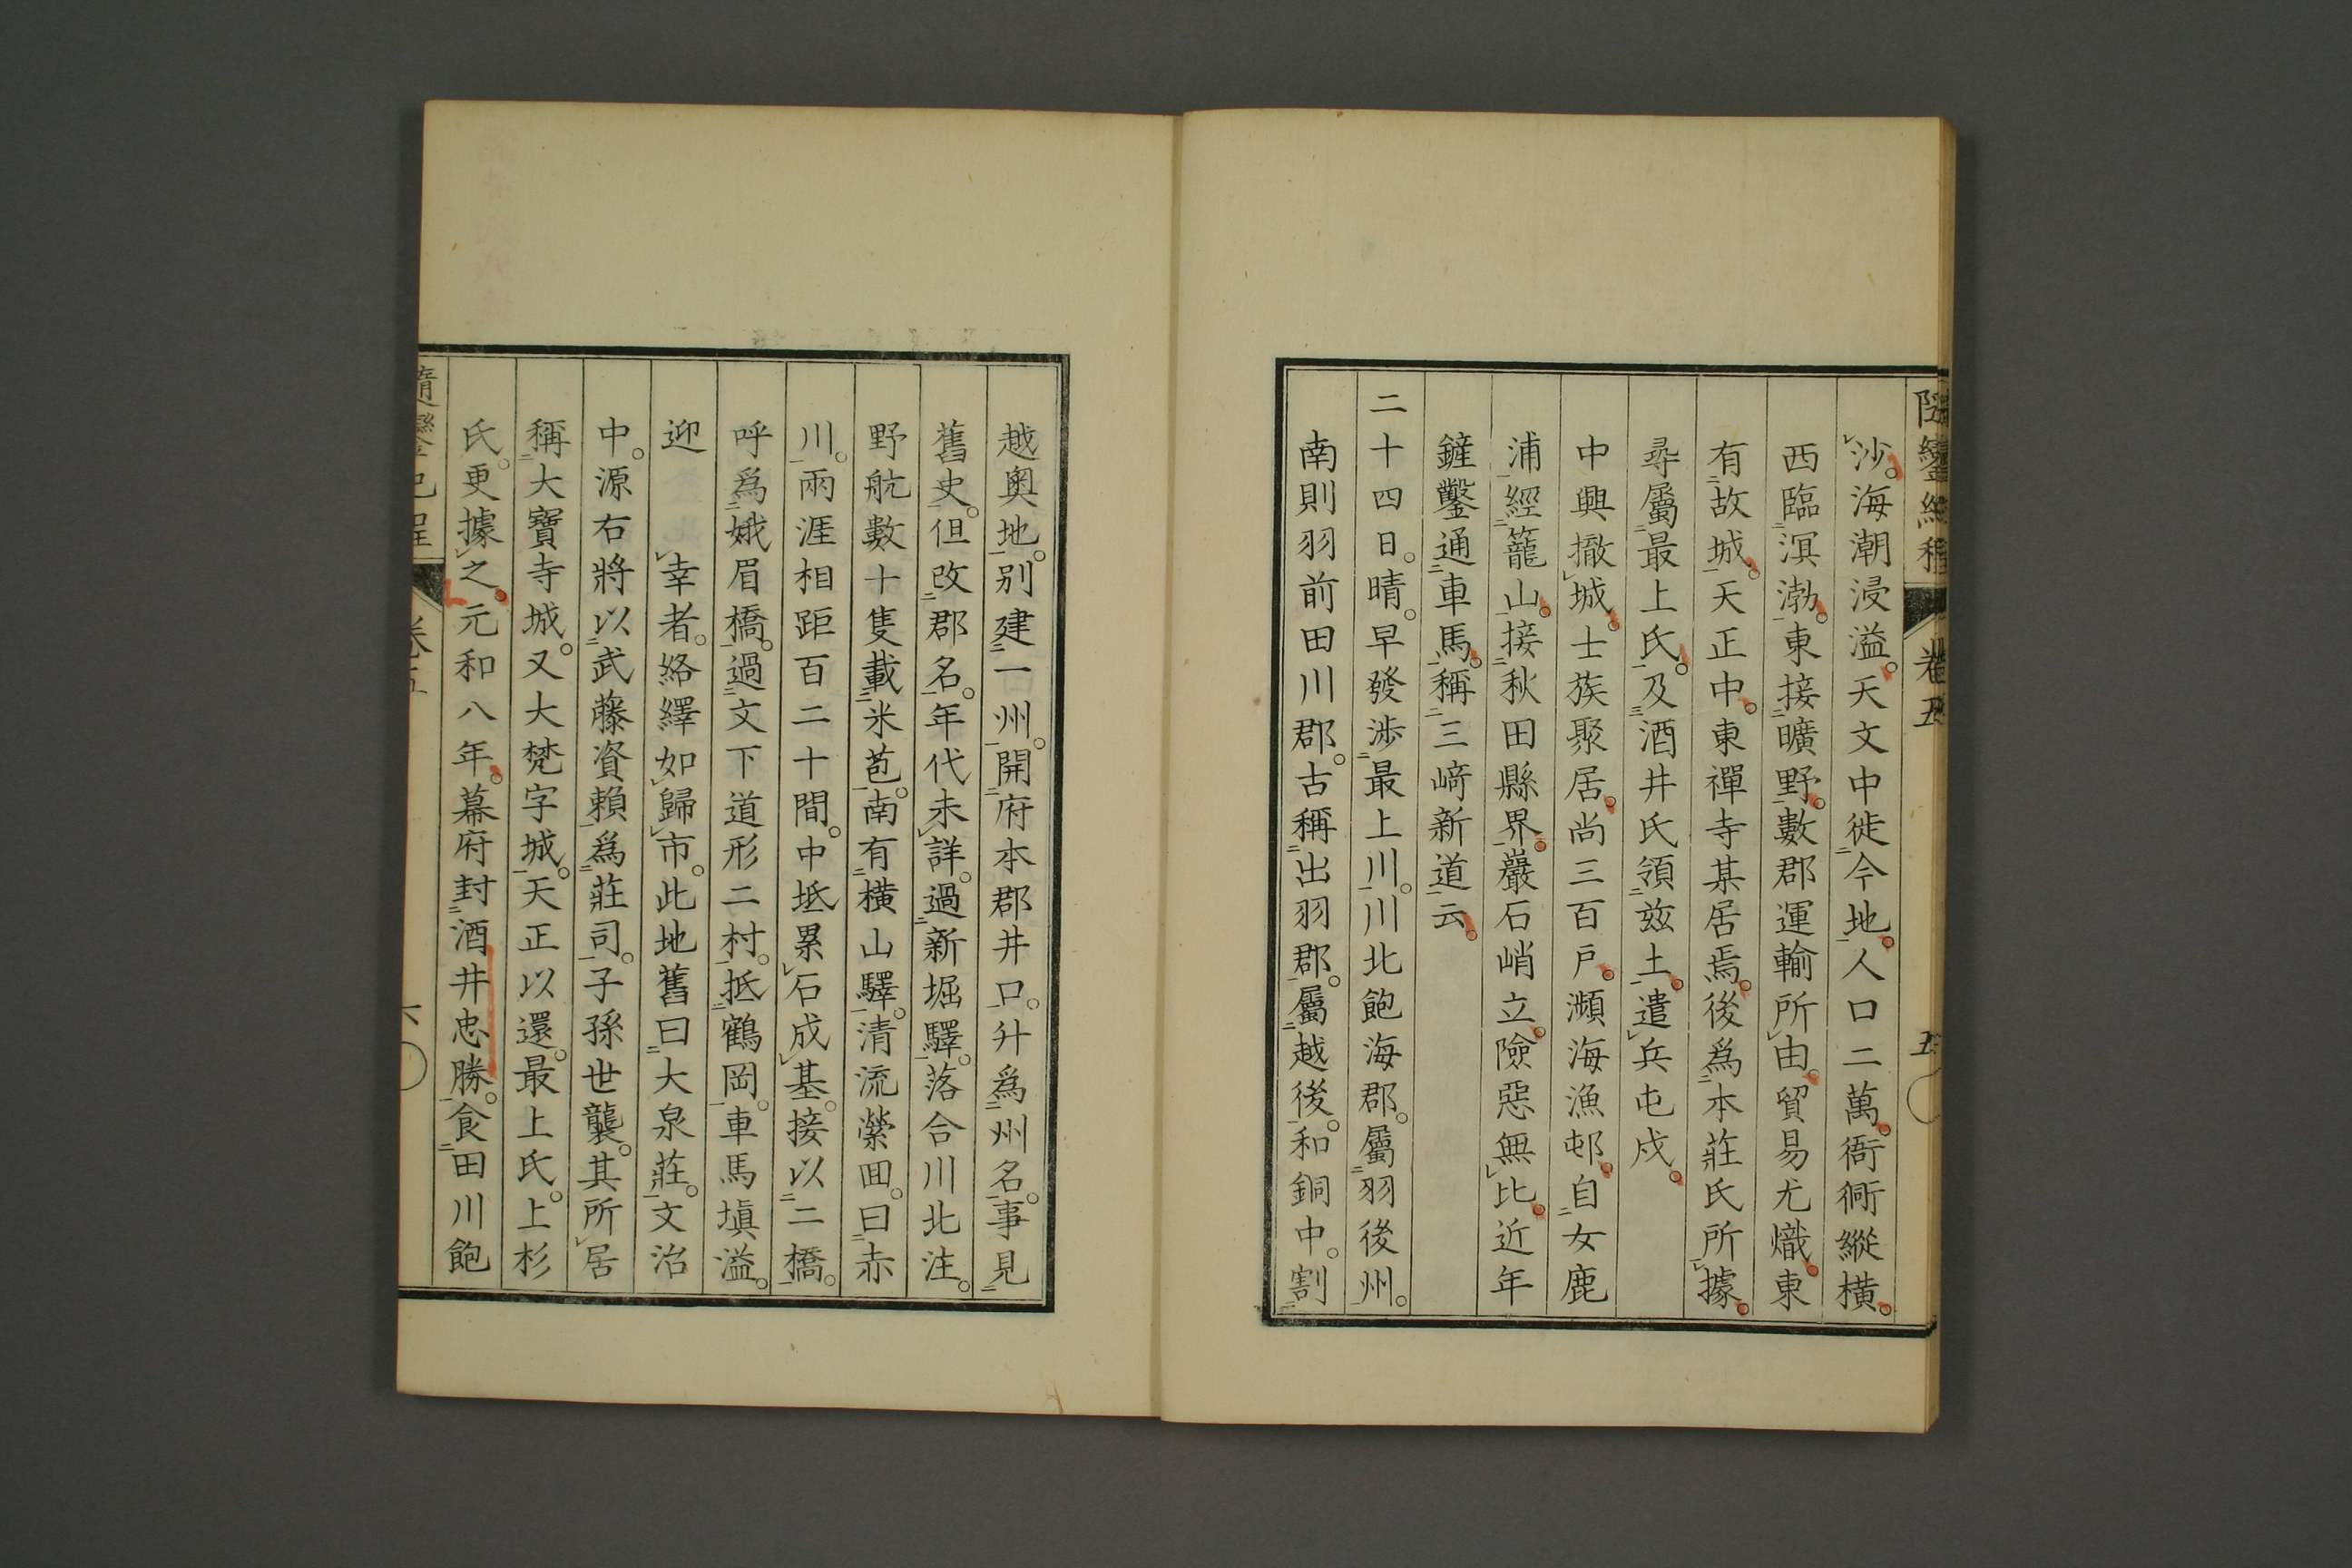 隨鑾紀程 卷五 五
沙。海潮浸溢。天文中徙今地。人口二萬。衙衕縱橫。
西臨溟渤。東接曠野。數郡運輸所由。貿易尤熾。東
有故城。天正中。東禪寺某居焉。後爲本莊氏所據。
尋屬最上氏。及酒井氏領玆土。遣兵屯戍。
中興撤城。士族聚居。尚三百戶。瀕海漁邨。自女鹿
浦經籠山。接秋田縣界。巖石峭立。險惡無比。近年
鏟鑿通車馬。稱三﨑新道云。
二十四日。晴。早發涉最上川。川北飽海郡。屬羽後州。
南則羽前田川郡。古稱出羽郡。屬越後。和銅中。割
越奧地。別建一州。開府本郡井口。升爲州名。事見
舊史。但改郡名。年代未詳。過新堀驛。落合川北注。
野航數十隻載米苞。南有橫山驛。清流縈回。曰赤
川。兩涯相距百二十間。中坻累石成基。接以二橋。
呼爲娥眉橋。過文下道形二村。抵鶴岡。車馬塡溢。
迎 幸者。絡繹如歸市。此地舊曰大泉莊。文治
中。源右將以武藤資賴爲莊司。子孫世襲。其所居
稱大寶寺城。又大梵字城。天正以還。最上氏。上杉
氏。更據之。元和八年。幕府封酒井忠勝。食田川飽
隨鑾紀程 卷五 六